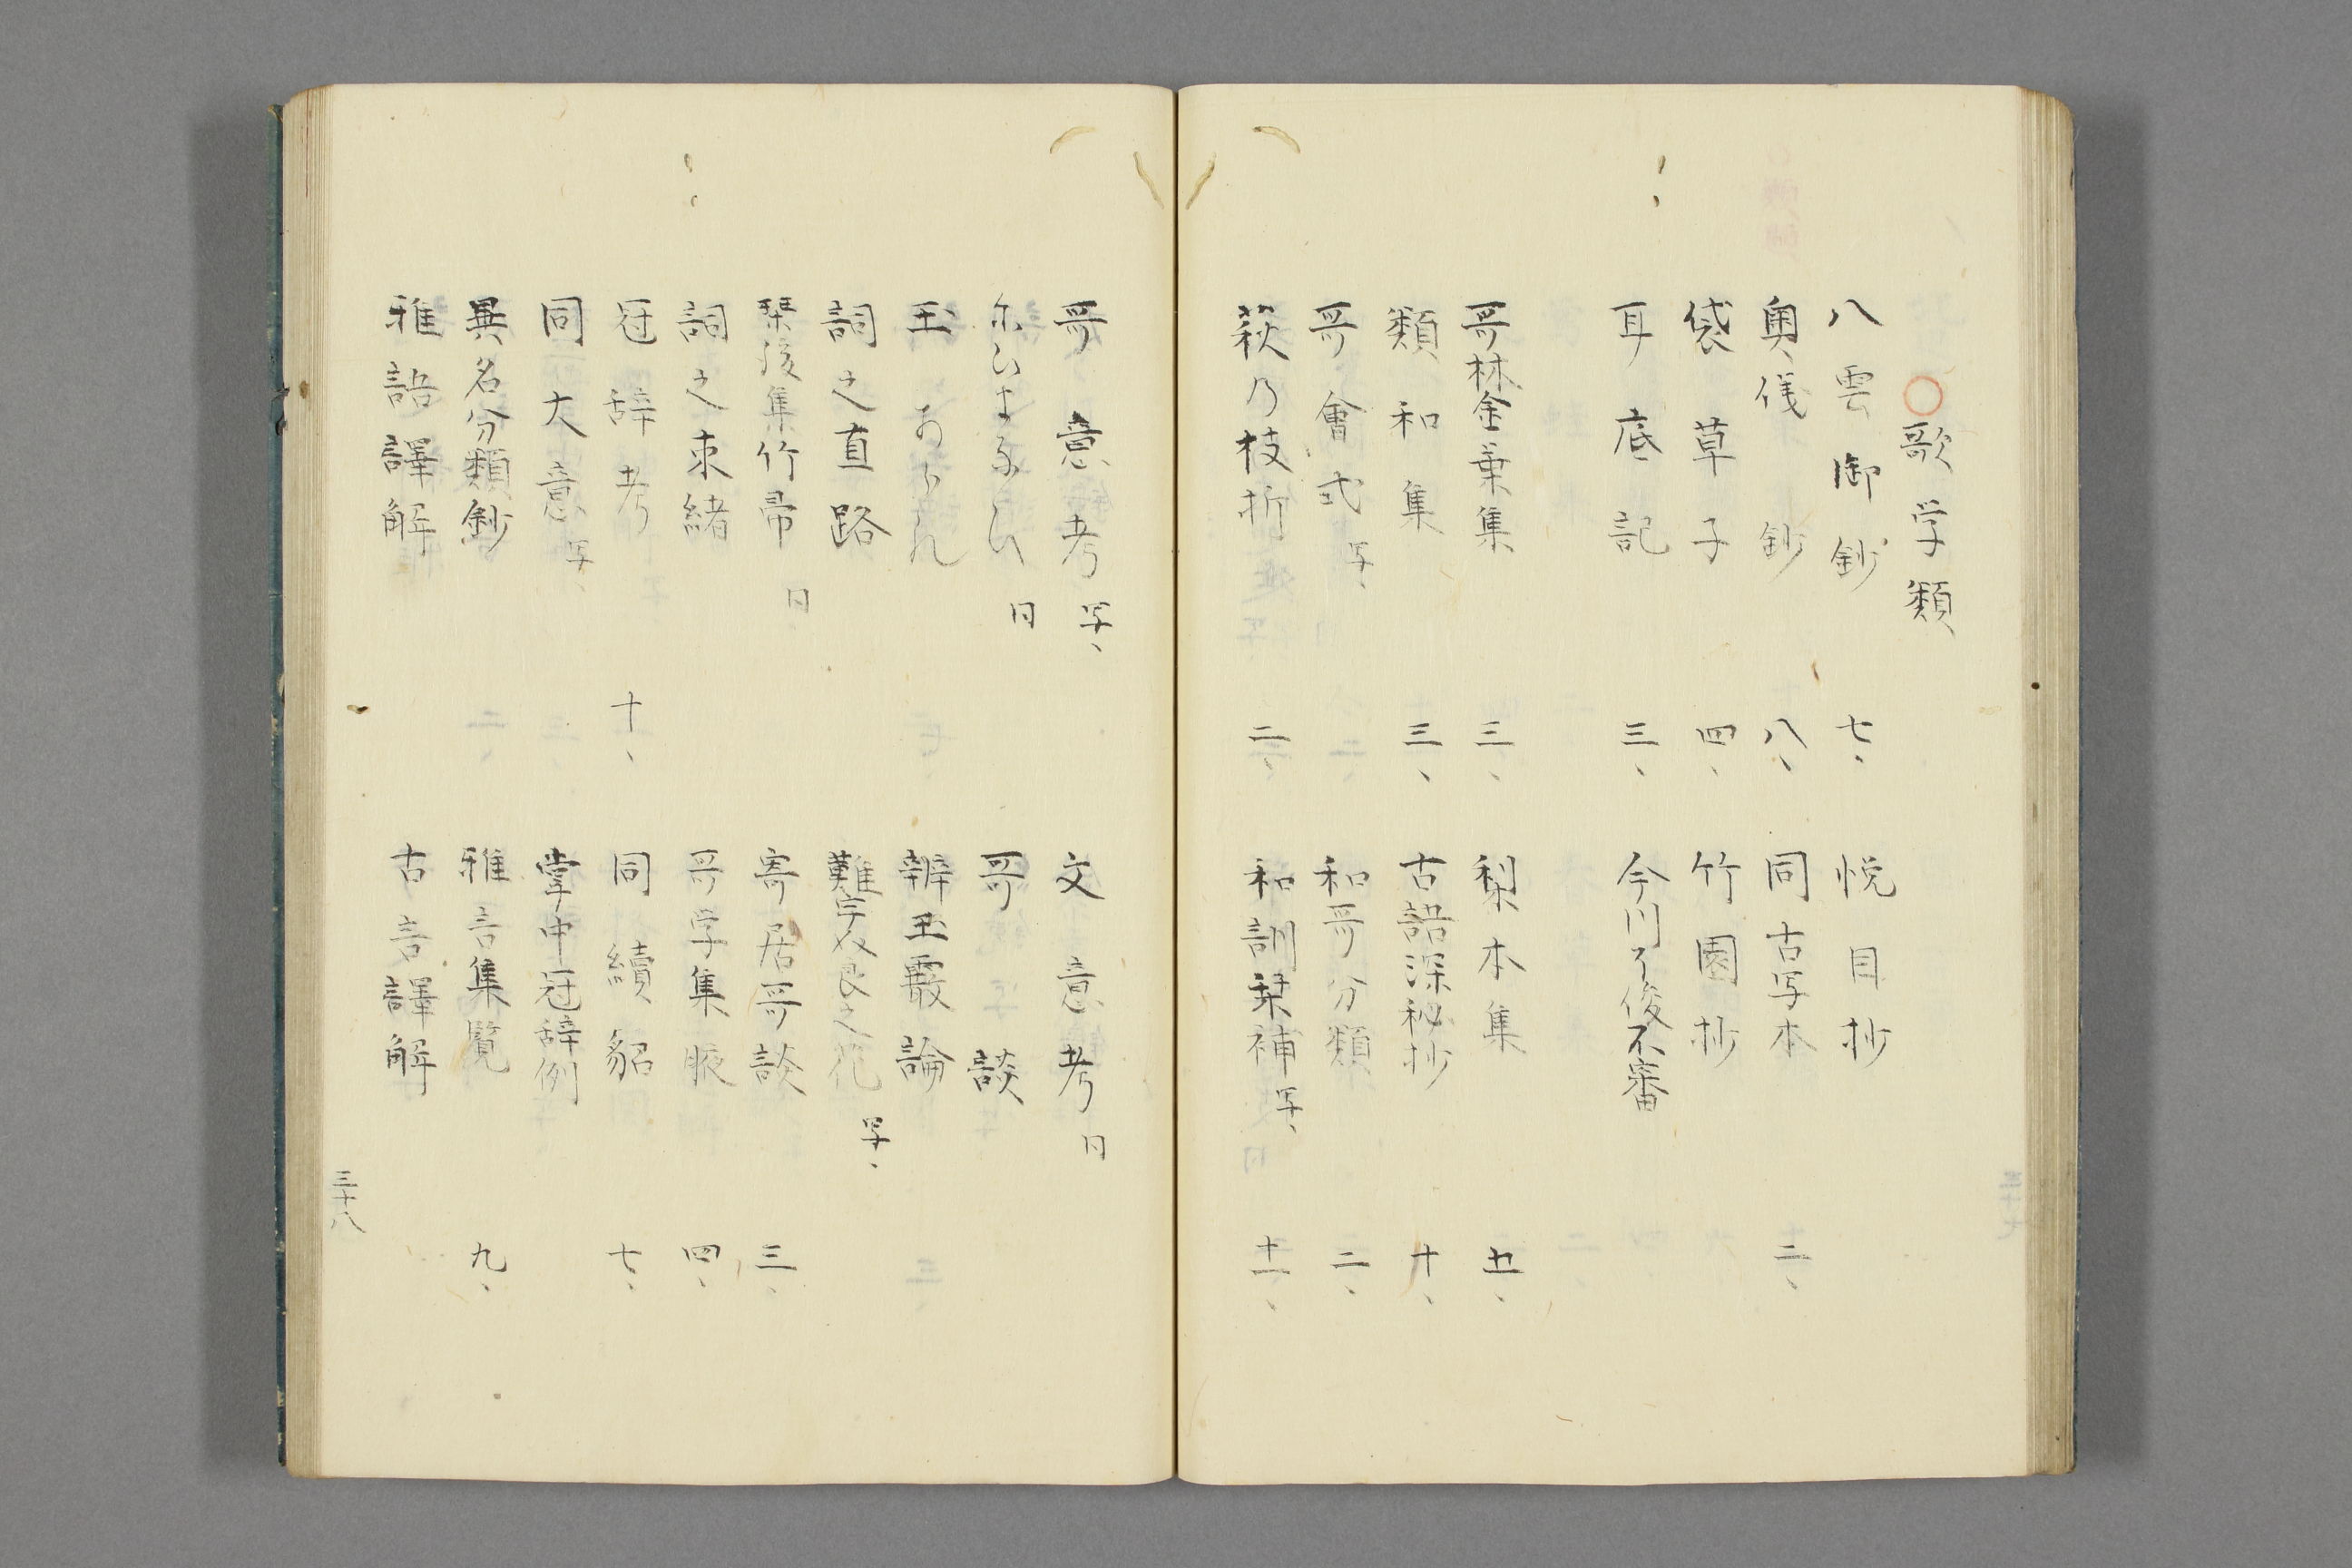 ○歌学類
八雲御鈔 七、 悦目抄
奥儀鈔 八、 同古写本 二、
袋草子 四、 竹園抄
耳底記 三、 今川了俊不審
哥林金葉集 三、 梨本集 五、
類和集 三、 古語深秘抄 十、
哥會式 写、 和哥分類 二、
萩乃枝折 二、 和訓栞補 写、 十一、
哥意考 写、 文意考 同
にひまなひ 同 哥談
玉あられ 辨玉霰論
詞之直路 難字奴良之花 写、
琴後集竹帚 同 寄居哥談 三、
詞之束緒 哥学集腋 四、
冠辞考 十、 同續貂 七、
同大意 写、 掌中冠辞例
異名分類鈔 雅言集覧 九、
雅語譯解 古言譯解
三十八